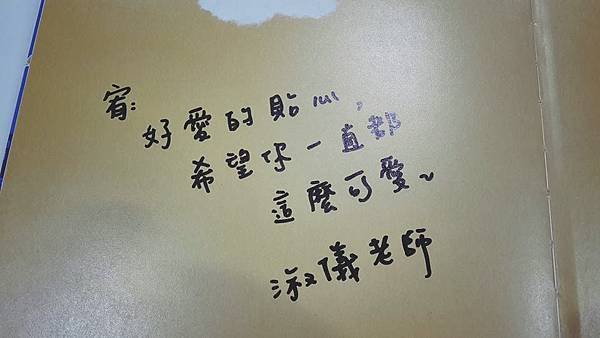 宥:
好愛的貼心,
希望你一直都
這麼可愛~
淑儀老師